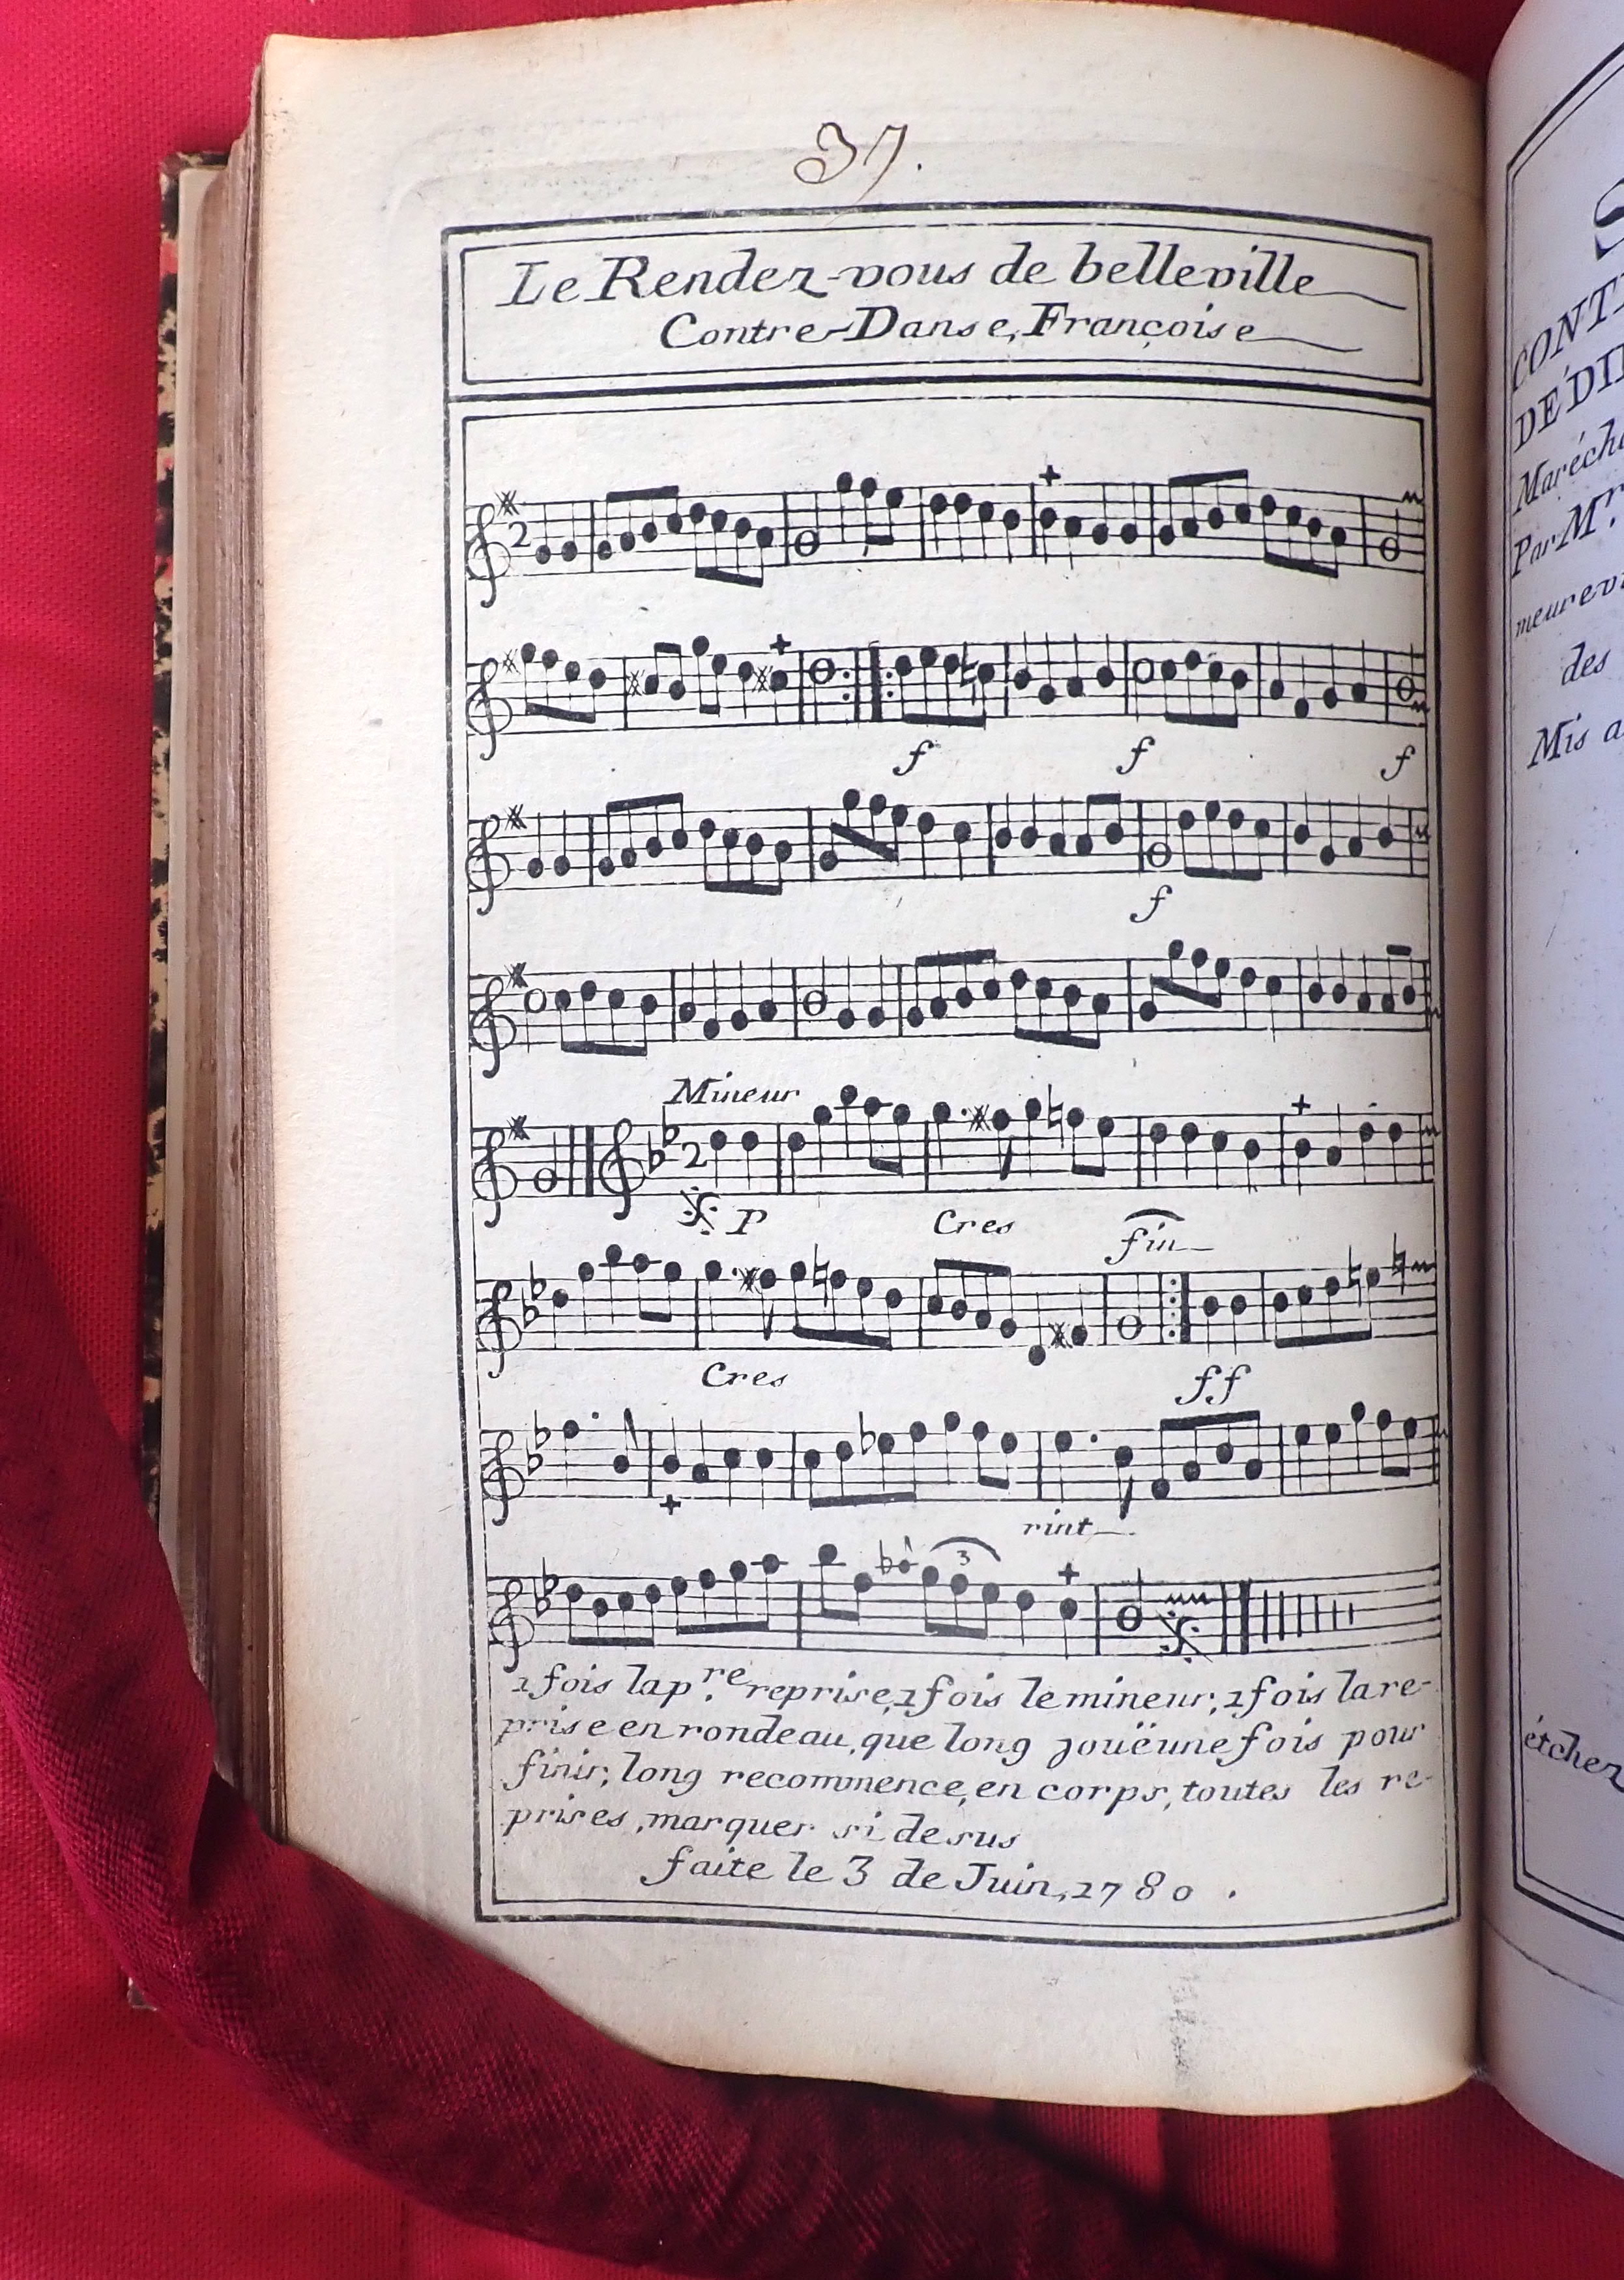 37.
Le Rendez-vous de belleville
Contre-Danse, Françoise
2
f f f
f
Mineur
2
P Cres fin
Cres ff
rint
3
1 fois la p.re reprise, 1 fois le mineur; 1 fois la re-
prise en rondeau, que long jouë une fois pour
finir; long recommence, en corps, toutes les re-
prises, marquer si desus
faite le 3 de Juin, 1780.
S
CONT
DÉDI
Maréch
Par Mr.
meure
des
Mis a
étchez